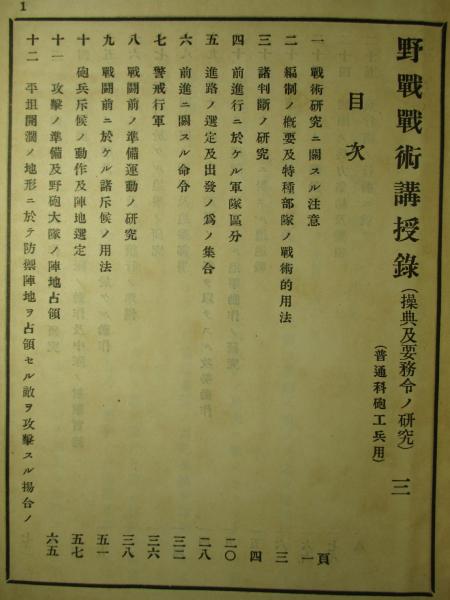 1
野戰戰術講授錄(操典及要務令ノ研究) 三
(普通科砲工兵用)
目次
頁
一 戰術研究ニ關スル注意 一
二 編制ノ概要及特種部隊ノ戰術的用法 三
三 諸判斷ノ研究 四
四 前進行ニ於ケル軍隊區分 二〇
五 進路ノ選定及出發ノ爲ノ集合 二八
六 前進ニ關スル命令 三二
七 警戒行軍 三六
八 戰鬪前ノ準備運動ノ研究 三八
九 戰鬪前ニ於ケル諸斥候ノ用法 五一
十 砲兵斥候ノ動作及陣地選定 五七
十一 攻擊ノ準備及野砲大隊ノ陣地占領 六五
十二 平坦開濶ノ地形ニ於テ防禦陣地ヲ占領セル敵ヲ攻擊スル場合ノ